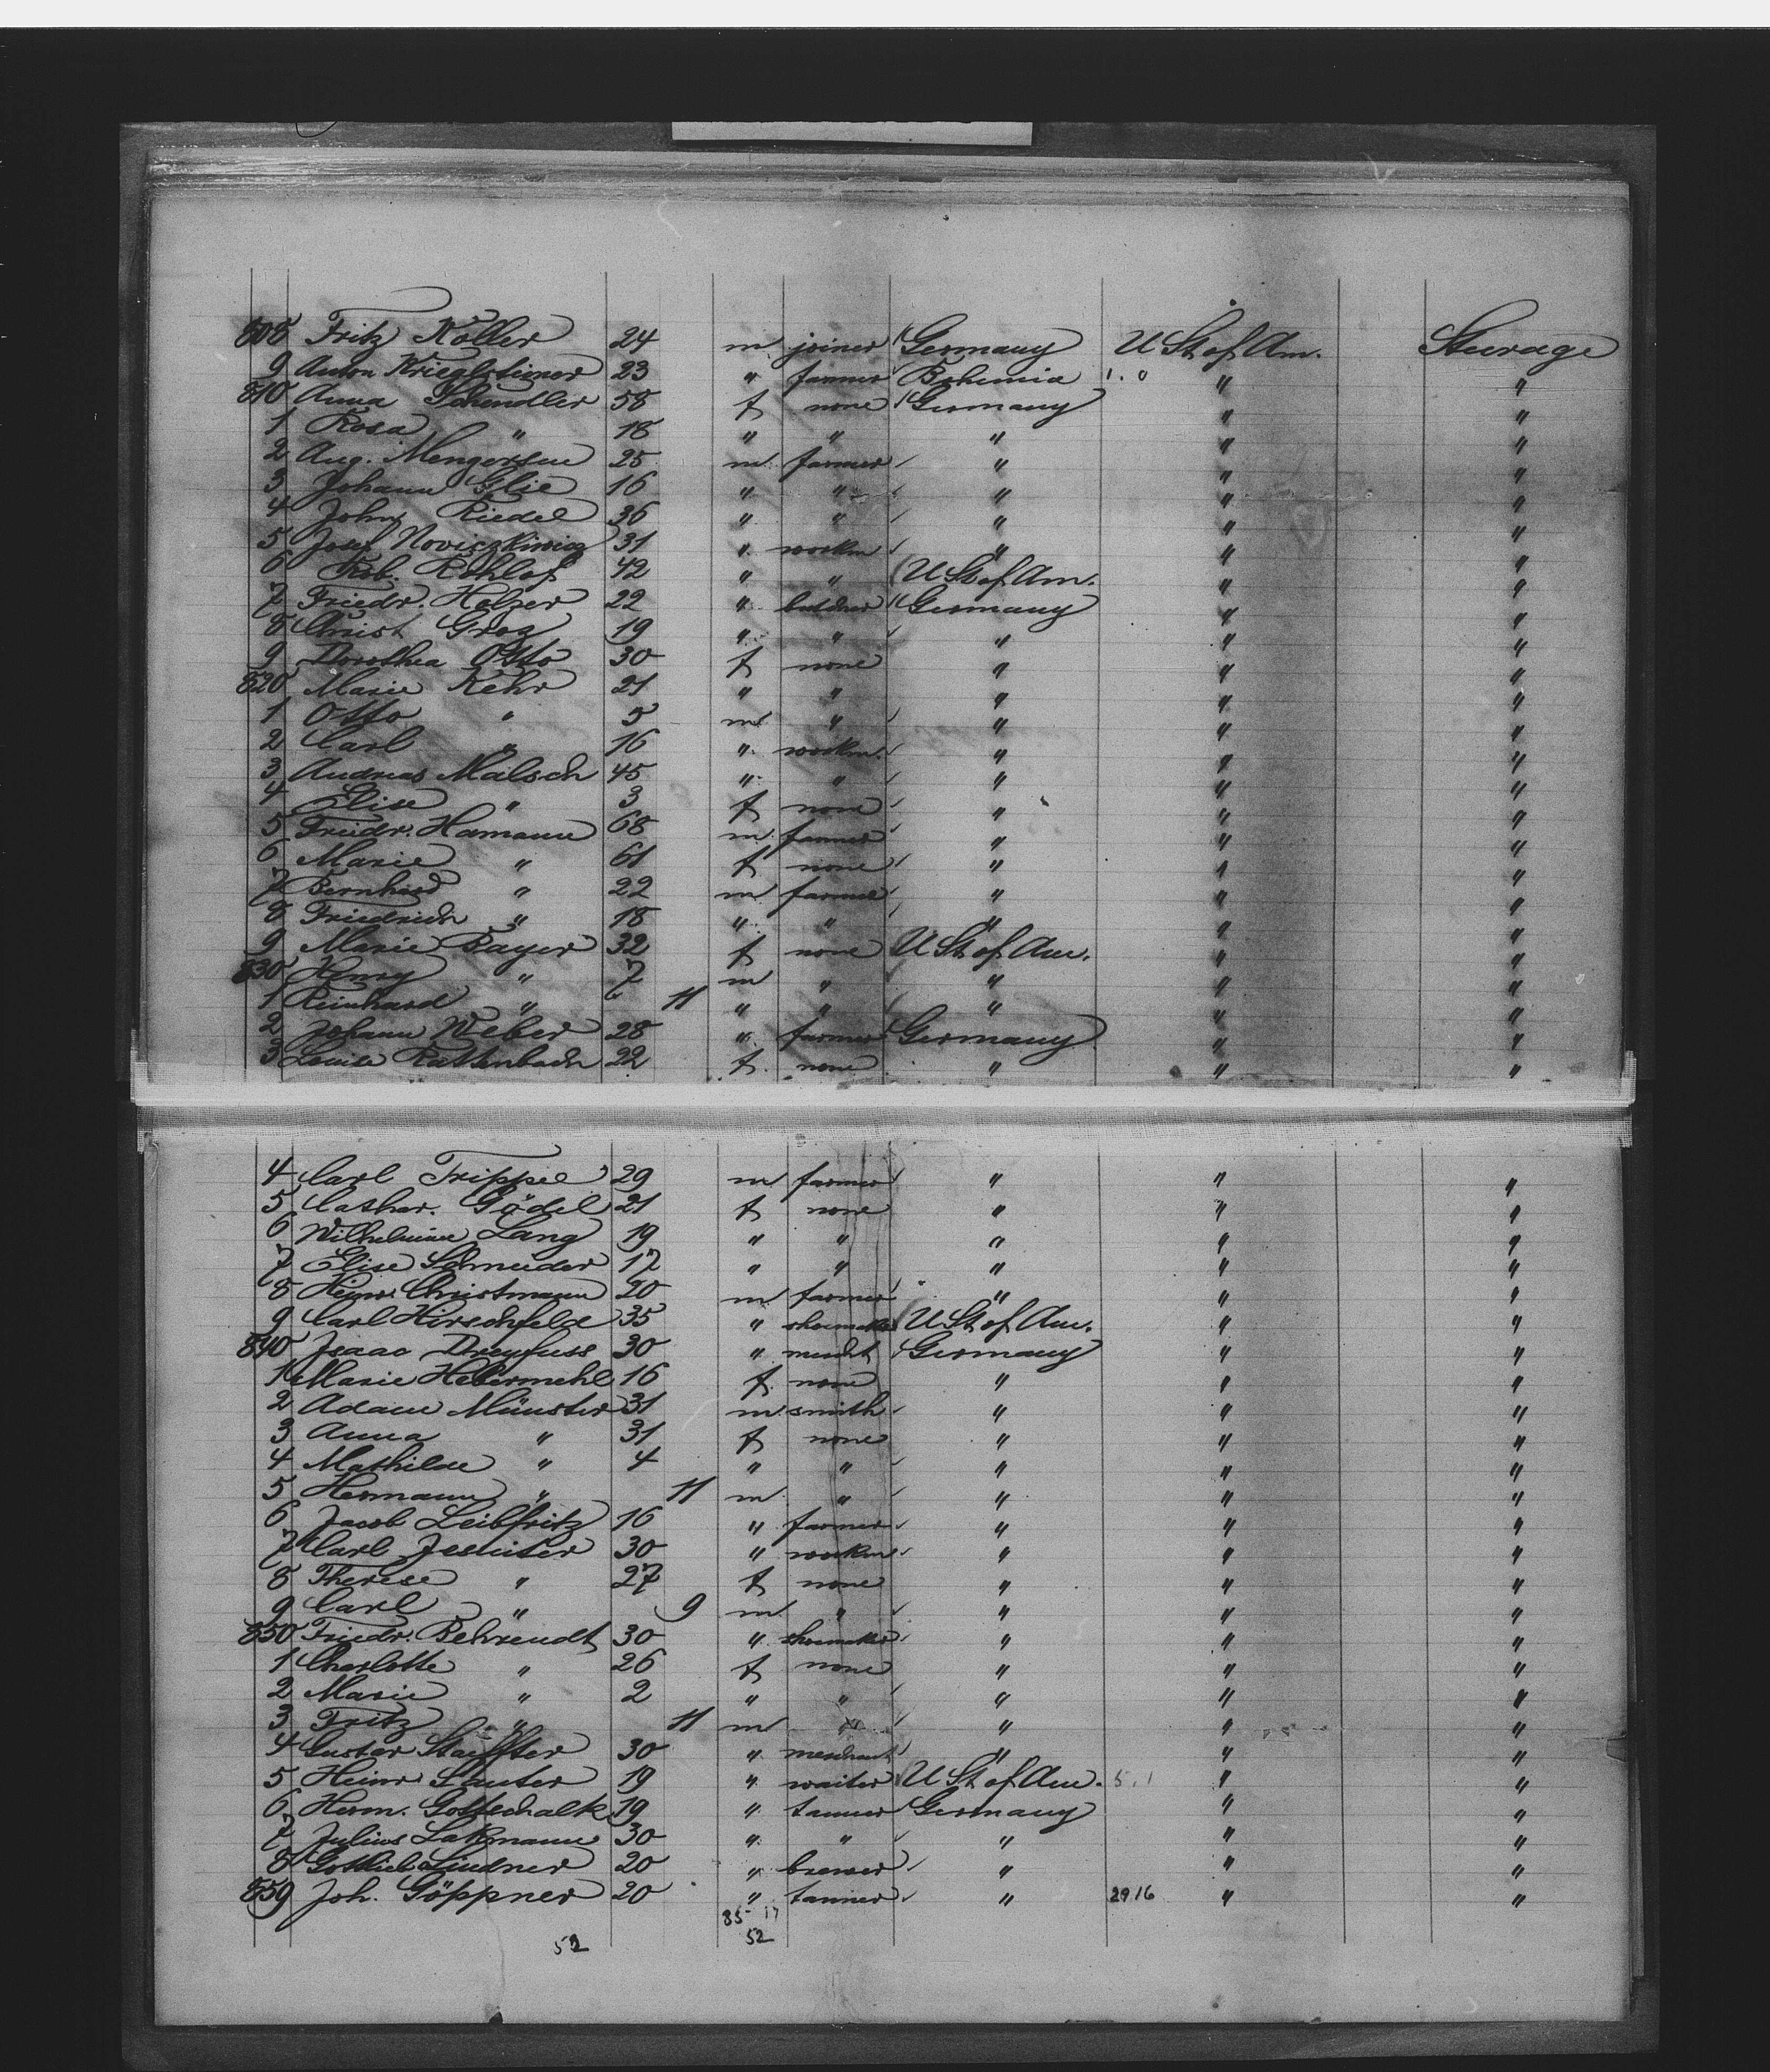 808 Fritz Koller 24 m joiner Germany U St of Am. Steerage
9 Anton 23 " farmer Bohemia " "
810 Anna Schindler 58 f none Germany " "
1 Rosa " 18 " " " " "
2 Aug. Mengersen 25 m farmer " " "
3 Johann Glie 16 " " " " "
4 John Riedel 36 " " " " "
5 Josef 31 " workm " " "
6 Rob. Rohlof 42 " " U St of Am. " "
7 Friedr. Holzer 22 " Germany " "
8 Christ Groz 19 " " " " "
9 Dorothea Otto 30 f none " " "
820 Marie Kehr 21 " " " " "
1 Otto " 5 m " " " "
2 Carl " 16 " workm. " " "
3 Andreas Malsch 45 " " " " "
4 Elise " 3 f none " " "
5 Friedr. Hamann 68 m farmer " " "
6 Marie " 61 f none " " "
7 Bernhard " 22 m farmer " " "
8 Friedrich " 18 " " " " "
9 Marie Bayer 32 f none U St of Am. " "
830 Henry " 7 m " " " "
1 Reinhard " 11 " " " " "
2 Johann Weber 28 " farmer Germany " "
3 Louise Rattenbach 22 f none " " "
4 Carl Trippel 29 m farmer " " "
5 Cathar. Gödel 21 f none " " "
6 Wilhelmine Lang 19 " " " " "
7 Elise Schneider 17 " " " " "
8 Heinr. Christmann 20 m farmer " " "
9 Carl Hirschfeld 35 " shoemaker U St of Am. " "
840 Isaac Dreyfuss 30 " mercht Germany " "
1 Marie Hebermehl 16 f none " " "
2 Adam Münster 31 m smith " " "
3 Anna " 31 f none " " "
4 Mathilde " 4 " " " " "
5 Hermann " 11 m " " " "
6 Jacob Leibfritz 16 " farmer " " "
7 Carl Jesuiter 30 " workm " " "
8 Therese " 27 f none " " "
9 Carl " 9 m " " " "
850 Friedr. Behrendt 30 " shoemaker " " "
1 Charlotte " 26 f none " " "
2 Marie " 2 " " " " "
3 Fritz " 11 m " " " "
4 Gustav 30 " merchant " " "
5 Heinr. Sauter 19 " waiter U St of Am. " "
6 Herm. Gottschalk 19 " tanner Germany " "
7 Julius Lakmann 30 " " " " "
8 Gottlieb Lindner 20 " brewer " " "
859 Joh. Göppner 20 " tanner " 2916 " "
85 - 17
52 52